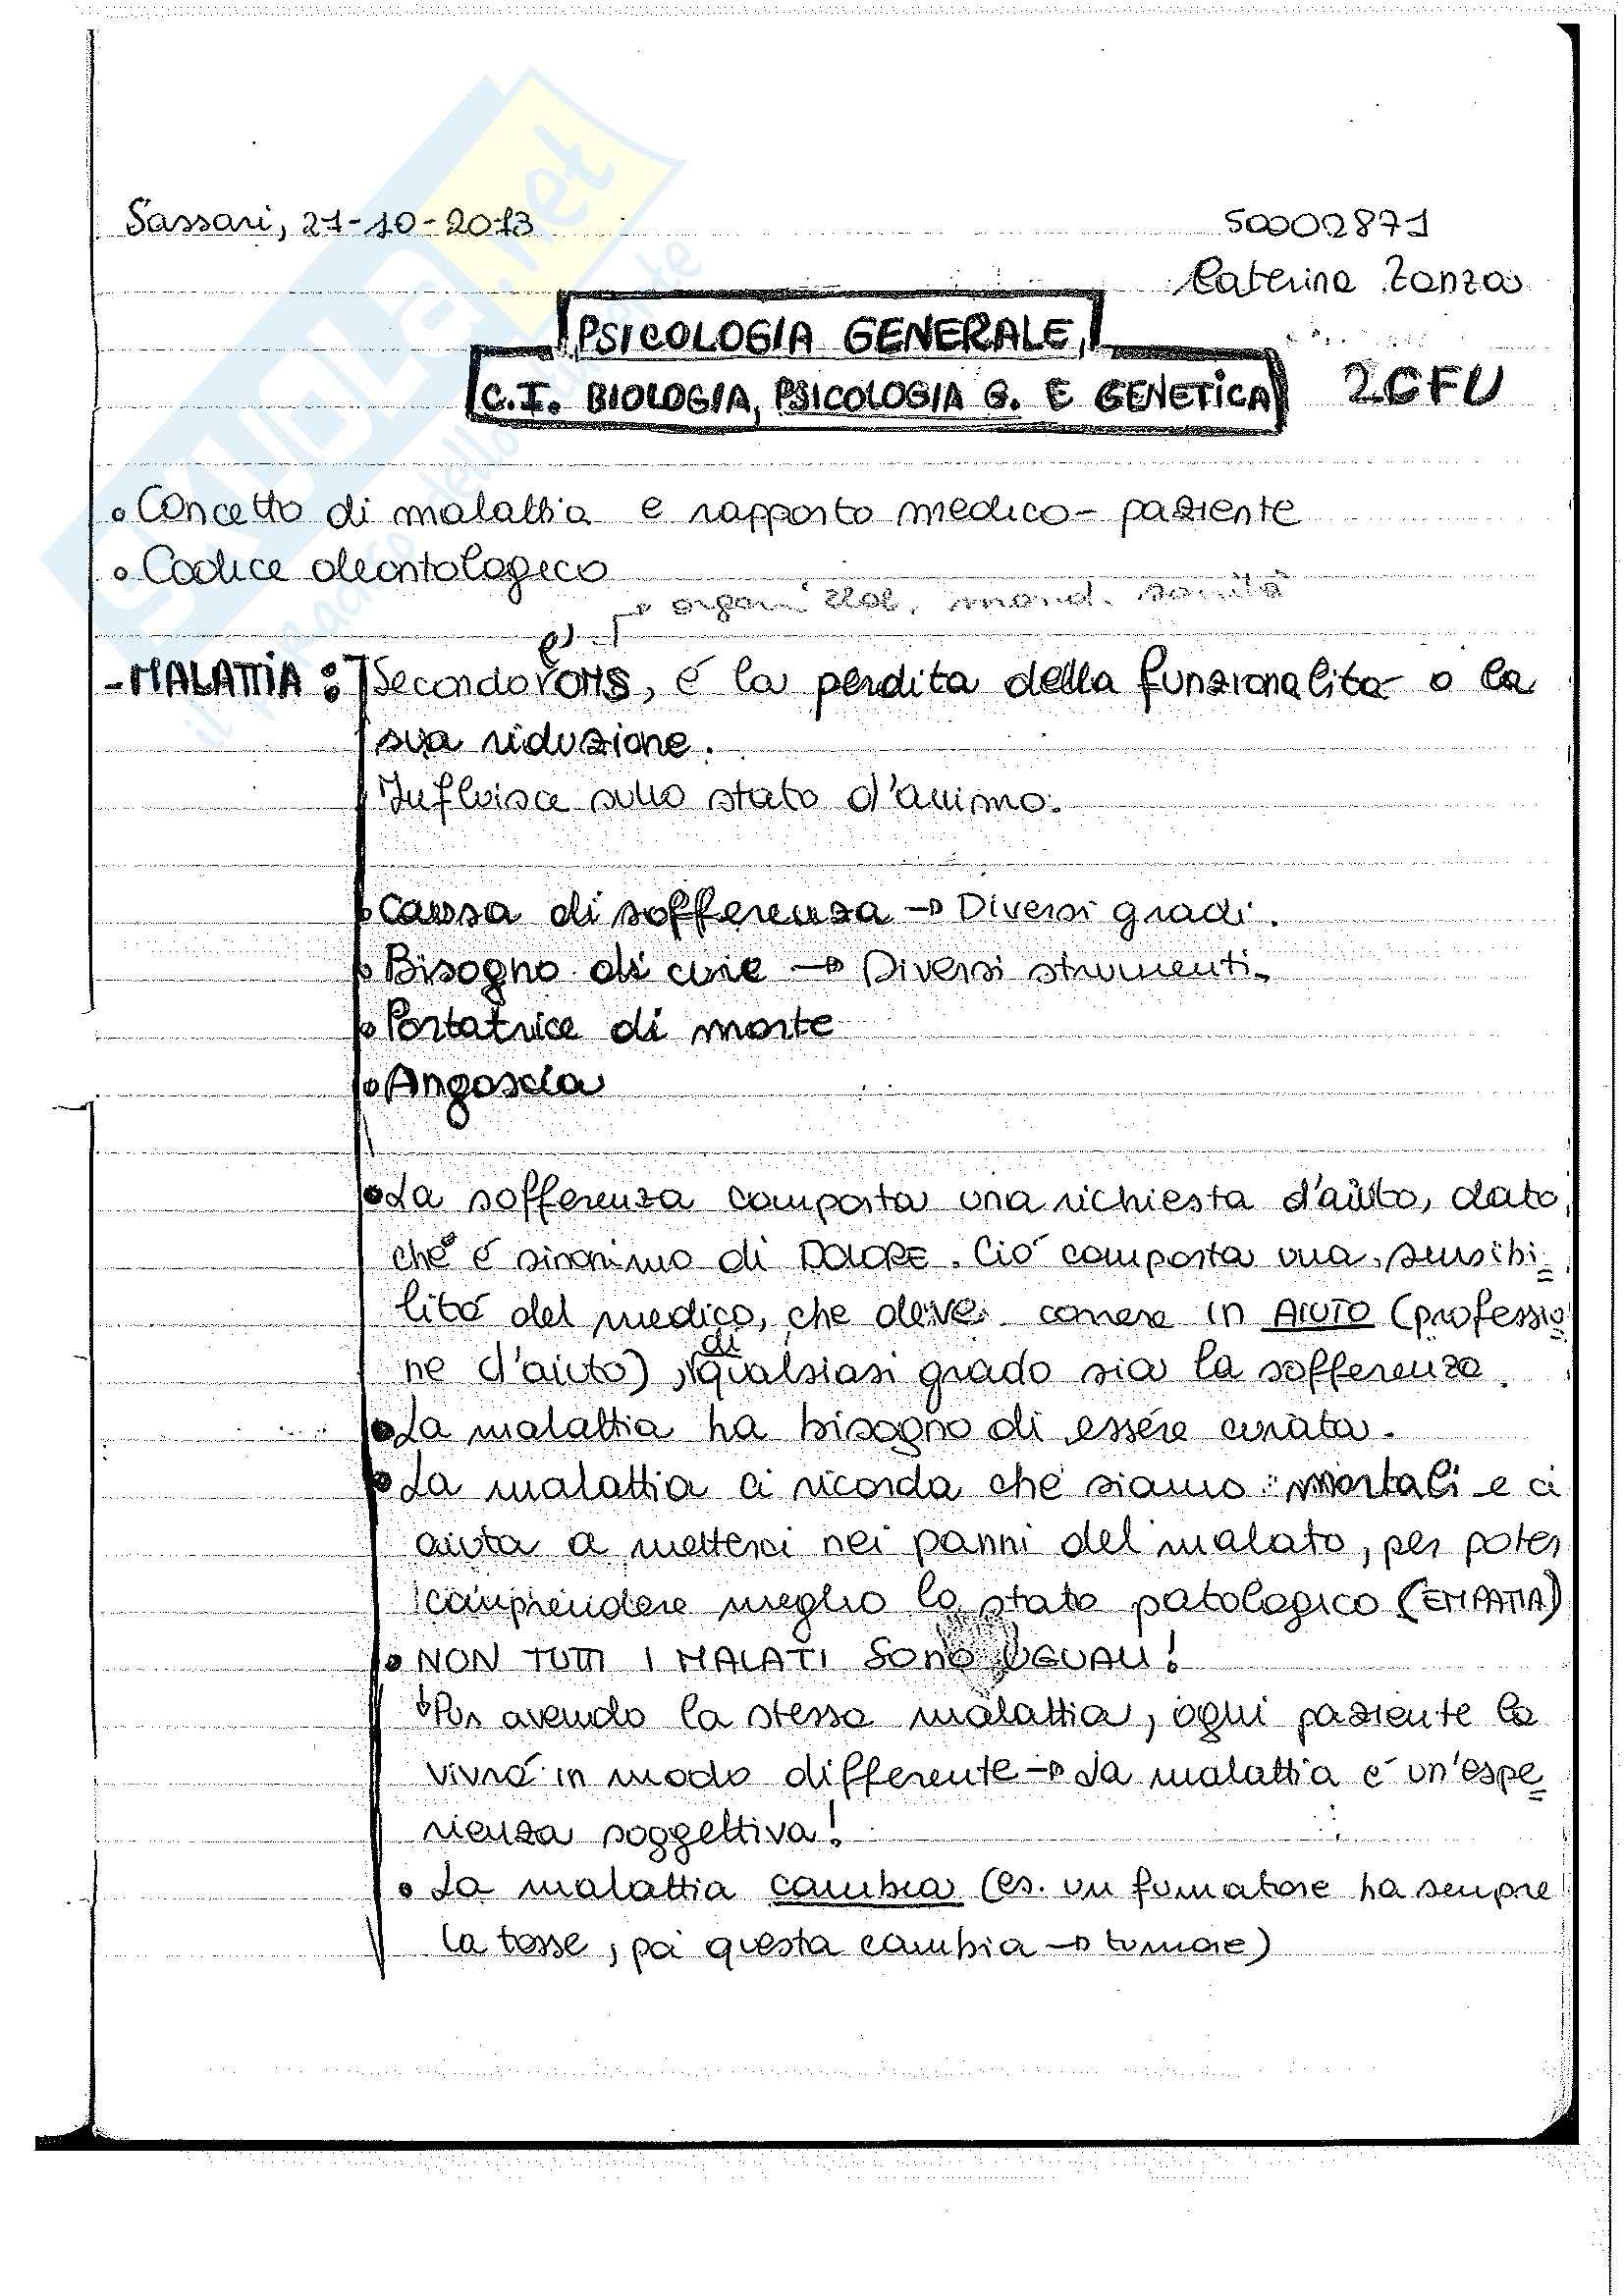 Sassari, 21-10-2013
50002871
Caterina Zanza
PSICOLOGIA GENERALE,
C.I. BIOLOGIA, PSICOLOGIA G. E GENETICA
2 CFU
• Concetto di malattia e rapporto medico-paziente
• Codice deontologico
→ organizzaz. mond. sanità
- MALATTIA: Secondo l'OMS, é la perdita della funzionalitá o la
sua riduzione.
Influisce sullo stato d'animo.
• Causa di sofferenza → Diversi gradi.
• Bisogno di cure → Diversi strumenti.
• Portatrice di morte
• Angoscia
• La sofferenza comporta una richiesta d'aiuto, dato
che é sinonimo di DOLORE. Ció comporta una sensibi=
litá del medico, che deve correre in AIUTO (professio=
ne d'aiuto), di qualsiasi grado sia la sofferenza.
• La malattia ha bisogno di essere curata.
• La malattia ci ricorda che siamo mortali e ci
aiuta a metterci nei panni del malato, per poter
comprendere meglio lo stato patologico (EMPATIA)
• NON TUTTI I MALATI SONO UGUALI!
↓ Pur avendo la stessa malattia, ogni paziente la
vivrá in modo differente → La malattia é un'espe=
rienza soggettiva!
• La malattia cambia (es. un fumatore ha sempre
la tosse, poi questa cambia → tumore)
SKUOLA.net